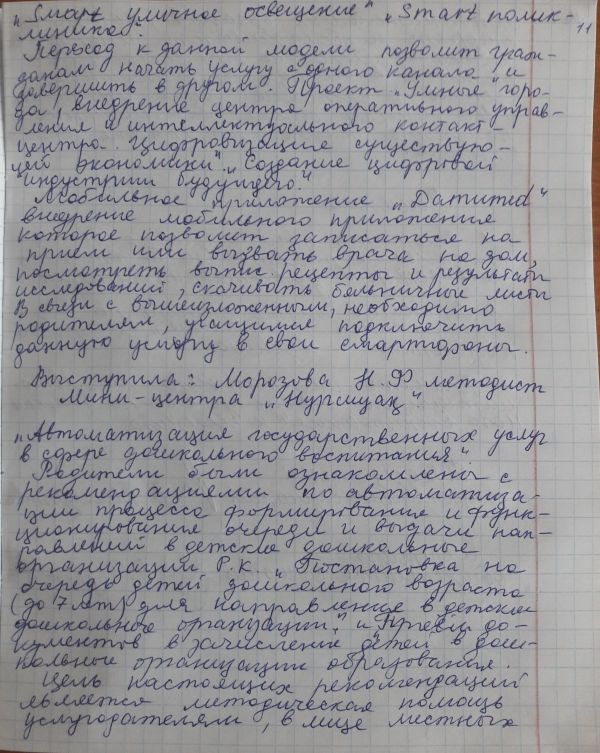 „Smart уличное освещение" „Smart полик-
линика".
11
Переход к данной модели позволит граж-
данам начать услугу с одного канала и
довершить в другом. Проект „Умные горо-
да", внедрение центра оперативного управ-
ления и интеллектуального контакт-
центра. Цифровизация существую-
щей экономики". „Создание цифровой
индустрии будущего."
Мобильное приложение „Damumed"
внедрение мобильного приложения
которое позволяет записаться на
прием или вызвать врача на дом,
посмотреть выпис. рецепты и результаты
исследований, скачивать больничные листы
В связи с вышеизложенным, необходимо
родителям, учащимся подключить
данную услугу в свои смартфоны.
Выступила: Морозова Н.Ф методист
Мини-центра „Нурсиуақ"
„Автоматизация государственных услуг
в сфере дошкольного воспитания"
Родители были ознакомлены с
рекомендациями по автоматиза-
ции процесса формирования и функ-
ционирования очереди и выдачи нап-
равлений в детские дошкольные
организации Р.К. „Постановка на
очередь детей дошкольного возраста
(до 7 лет) для направления в детские
дошкольные организации" и „Прием до-
кументов в зачисление детей в дош-
кольные организации образования.
Цель настоящих рекомендаций
является методическая помощь
услугодателям, в лице местных